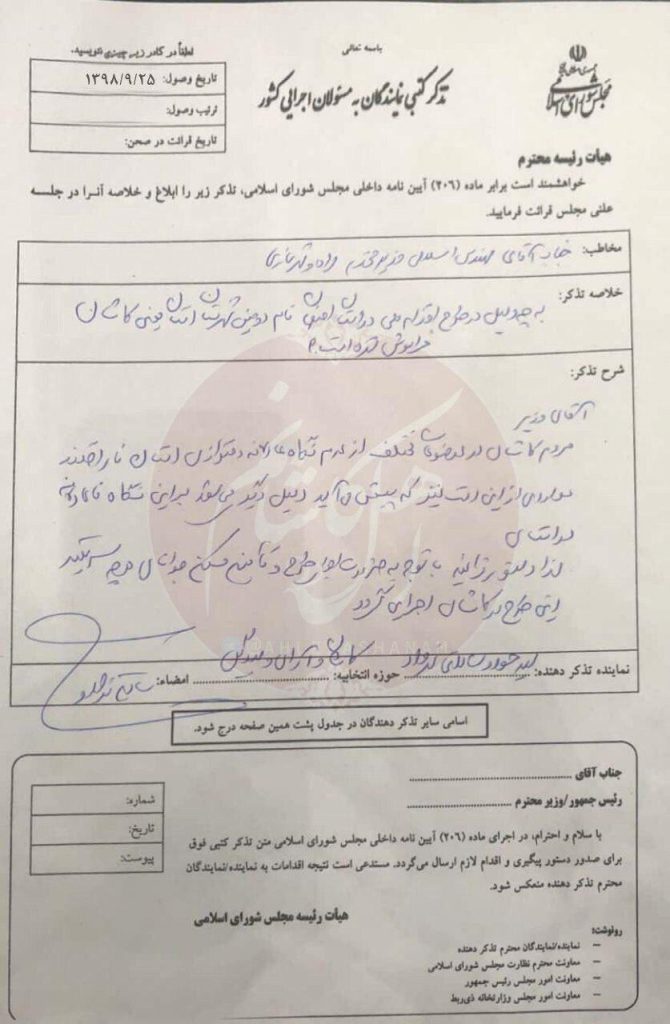 باسمه تعالی
جمهوری اسلامی ایران
مجلس شورای اسلامی
تذکر کتبی نمایندگان به مسئولان اجرایی کشور
لطفاً در کادر زیر چیزی ننویسید.
تاریخ وصول: ۱۳۹۸/۹/۲۵
ترتیب وصول:
تاریخ قرائت در صحن:
هیأت رئیسه محترم
خواهشمند است برابر ماده (۲۰۶) آیین نامه داخلی مجلس شورای اسلامی، تذکر زیر را ابلاغ و خلاصه آنرا در جلسه
علنی مجلس قرائت فرمایید.
مخاطب: جناب آقای مهندس اسلامی وزیر محترم راه و شهرسازی
خلاصه تذکر: به چه دلیل در طرح اقدام ملی در استان اصفهان نام دومین شهرستان استان یعنی کاشان
فراموش شده است؟
شرح تذکر:
آقای وزیر
مردم کاشان در موضوعات مختلف از عدم نگاه عادلانه و متوازن استان ناراضند
مواردی از این دست نیز که پیش می آید دلیل دیگری می شود بر این نگاه ناعادلانه
در استان
لذا دستور فرمائید با توجه به ضرورت اجرای طرح و تأمین مسکن جوانان هرچه سریعتر
این طرح در کاشان اجرایی گردد
نماینده تذکر دهنده: سید جواد ساداتی نژاد حوزه انتخابیه: کاشان و آران و بیدگل امضاء:
اسامی سایر تذکر دهندگان در جدول پشت همین صفحه درج شود.
جناب آقای
رئیس جمهور/وزیر محترم
شماره:
تاریخ:
پیوست:
با سلام و احترام، در اجرای ماده (۲۰۶) آیین نامه داخلی مجلس شورای اسلامی متن تذکر کتبی فوق
برای صدور دستور پیگیری و اقدام لازم ارسال می‌گردد. مستدعی است نتیجه اقدامات به نماینده/نمایندگان
محترم تذکر دهنده منعکس شود.
هیأت رئیسه مجلس شورای اسلامی
رونوشت:
– نماینده/نمایندگان محترم تذکر دهنده
– معاونت محترم نظارت مجلس شورای اسلامی
– معاونت امور مجلس رئیس جمهور
– معاونت امور مجلس وزارتخانه ذی‌ربط